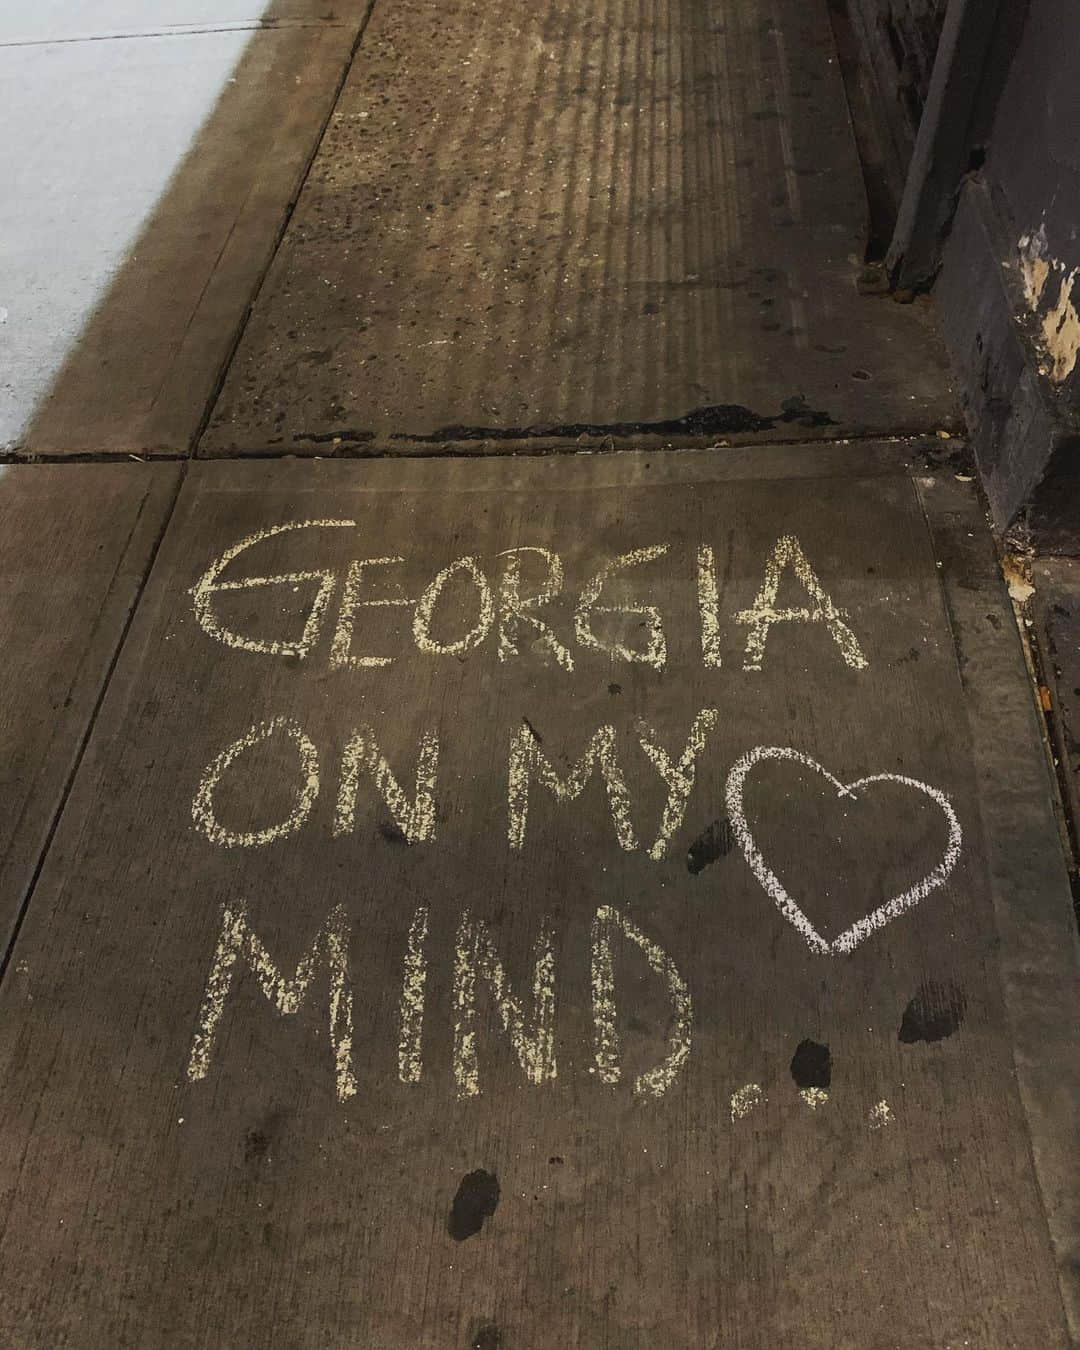 GEORGIA
ON MY
MIND...